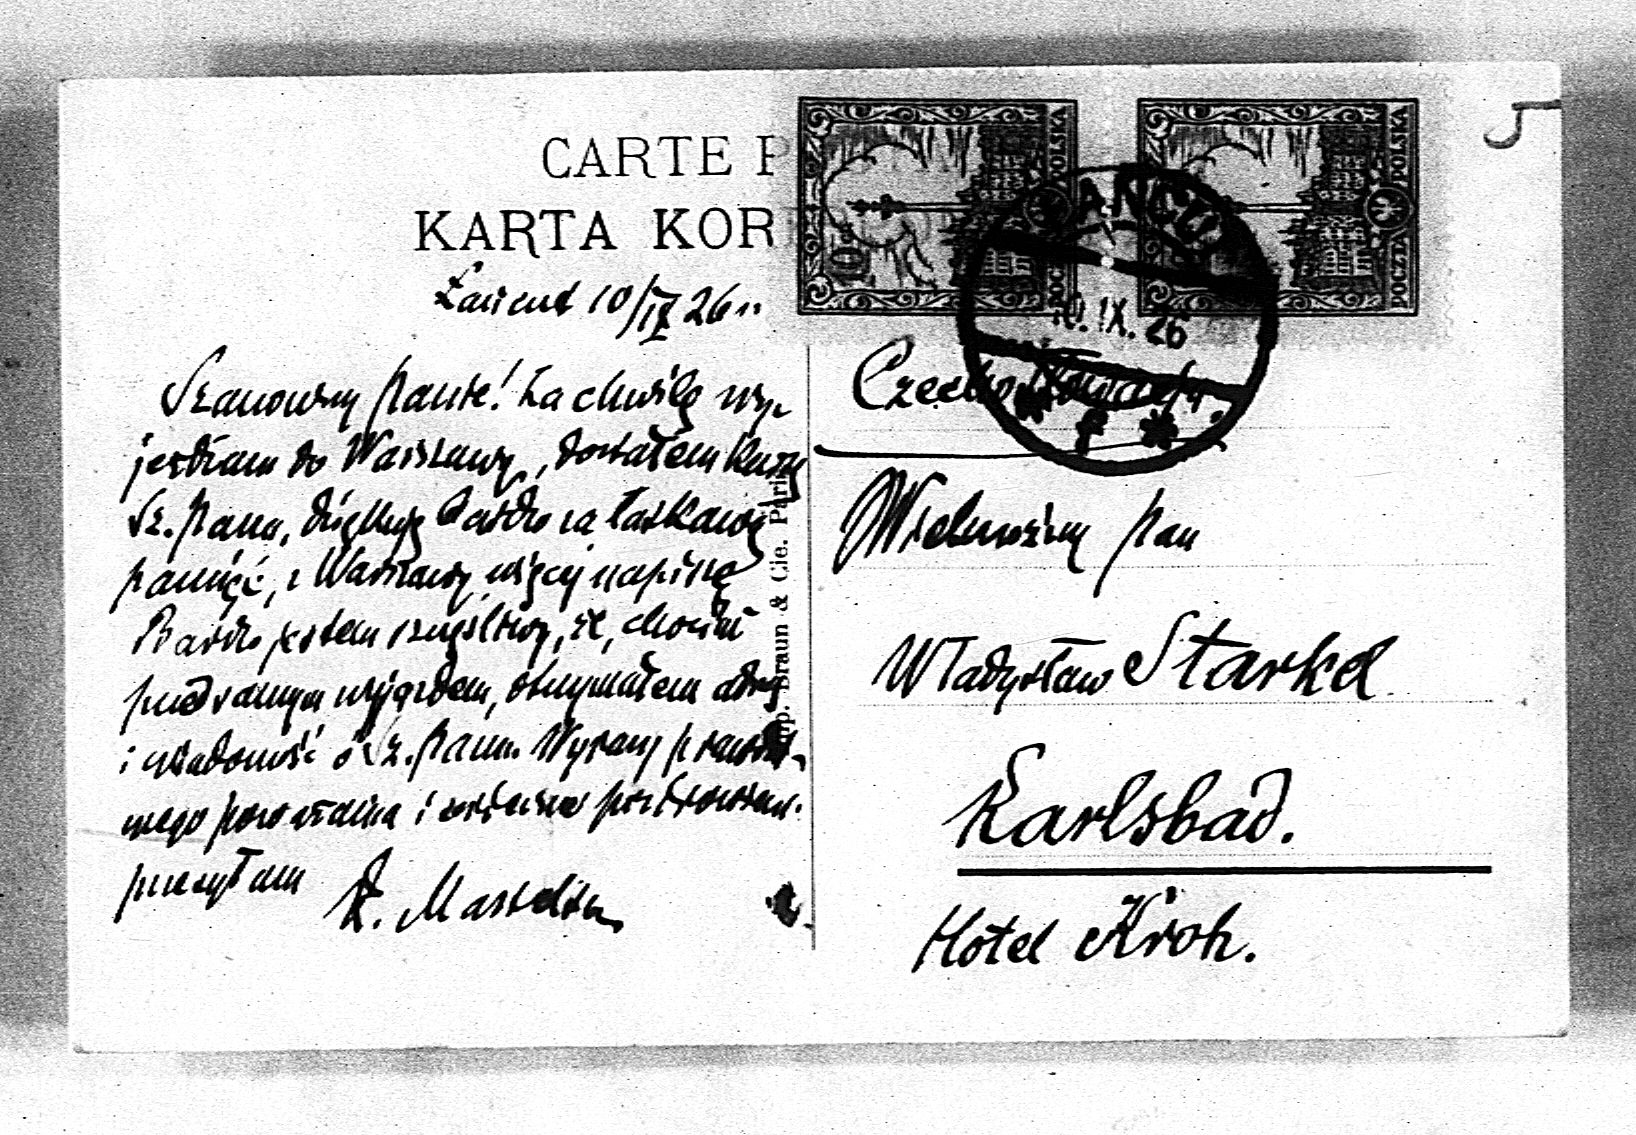 CARTE P
KARTA KOR
Łańcut 10/IX 26 r.
Szanowny Panie! Za chwilę wy-
jeżdżam do Warszawy, dostałem kartę
Sz. Pana, dziękuję bardzo za łaskawą
pamięć, z Warszawy więcej napiszę
Bardzo jestem szczęśliwy, że, chociaż
przed samym wyjazdem, otrzymałem
i wiadomość o Sz. Panu. Wyrazy prawdzi-
wego poważania i
przesyłam
Imp. Braun & Cie. Paris
POCZTA POLSKA
POCZTA POLSKA
ŁAŃCUT
10.IX.26
Czechosłowacja.
Wielmożny Pan
Władysław Starkel
Karlsbad.
Hotel Kroh.